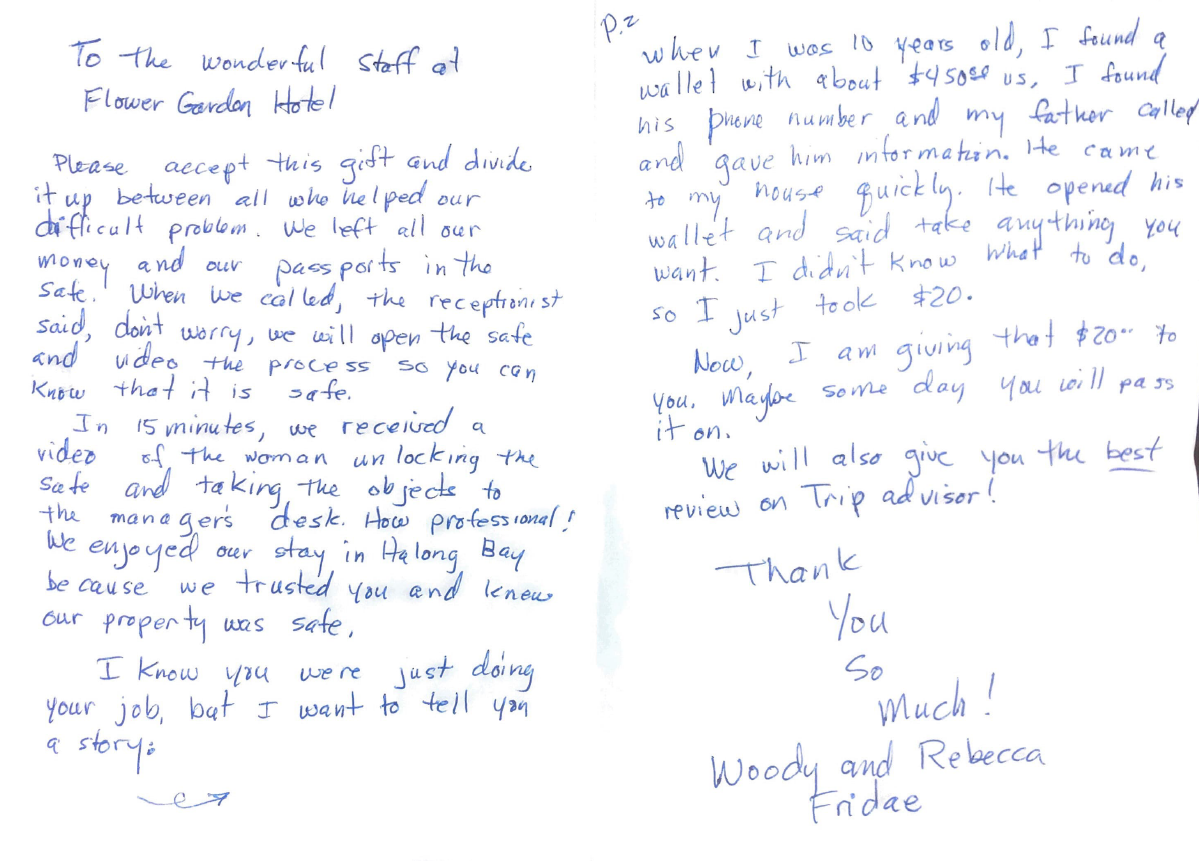 To the wonderful Staff at
Flower Garden Hotel
Please accept this gift and divide
it up between all who helped our
difficult problem. We left all our
money and our passports in the
safe. When we called, the receptionist
said, don't worry, we will open the safe
and video the process so you can
know that it is safe.
In 15 minutes, we received a
video of the woman unlocking the
safe and taking the objects to
the manager's desk. How professional!
We enjoyed our stay in Halong Bay
because we trusted you and knew
our property was safe.
I know you were just doing
your job, but I want to tell you
a story:
P.2
When I was 10 years old, I found a
wallet with about $450.00 US, I found
his phone number and my father called
and gave him information. He came
to my house quickly. He opened his
wallet and said take anything you
want. I didn't know what to do,
so I just took $20.
Now, I am giving that $20.00 to
you. Maybe some day you will pass
it on.
We will also give you the best
review on Trip advisor!
Thank
You
So
Much!
Woody and Rebecca
Fridae